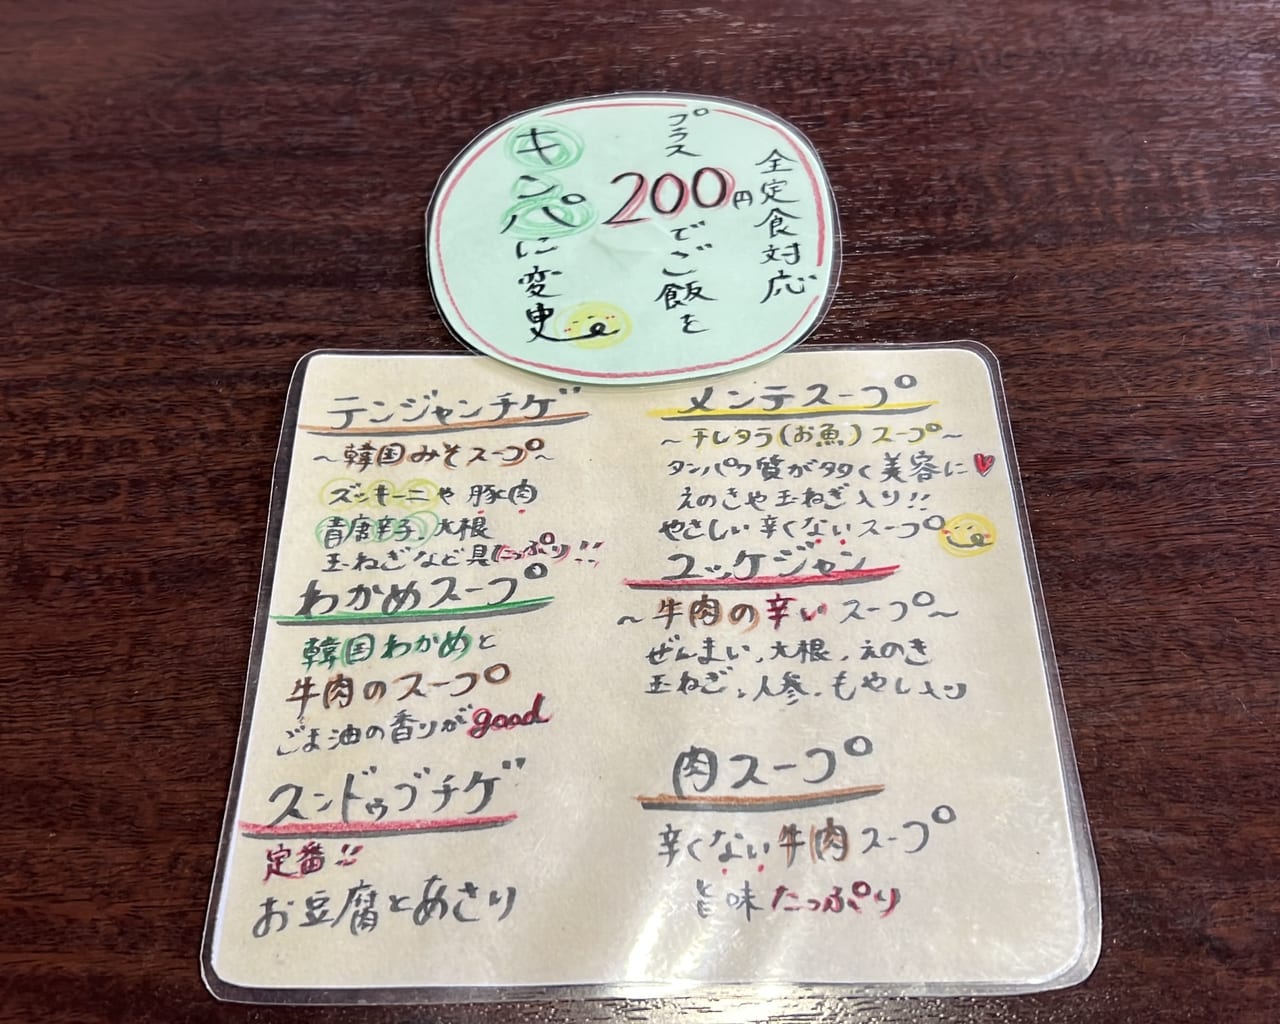 全定食対応
プラス
200円
でご飯を
キンパに変更
テンジャンチゲ
～韓国みそスープ～
ズッキーニや豚肉
青唐辛子、大根
玉ねぎなど具たっぷり!!
わかめスープ
韓国わかめと
牛肉のスープ
ごま油の香りがgood
スンドゥブチゲ
定番!!
お豆腐とあさり
メンテスープ
～干しタラ(お魚)スープ～
タンパク質が多く美容に♥
えのきや玉ねぎ入り!!
やさしい辛くないスープ
ユッケジャン
～牛肉の辛いスープ～
ぜんまい、大根、えのき
玉ねぎ、人参、もやし入り
肉スープ
辛くない牛肉スープ
旨味たっぷり